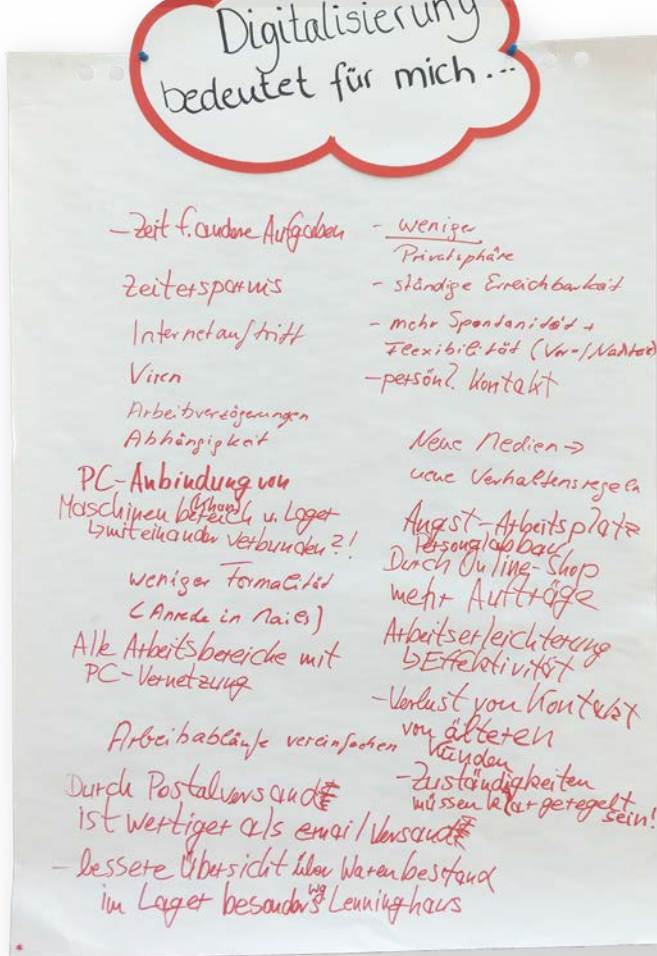 Digitalisierung
bedeutet für mich...
- Zeit f. andere Aufgaben
Zeitersparnis
Internetauftritt
Viren
Arbeitsverzögerungen
Abhängigkeit
PC-Anbindung von
Maschinen bereich u. Lager
↳ miteinander verbunden?!
weniger Formalität
(Anrede in Mails)
Alle Arbeitsbereiche mit
PC-Vernetzung
Arbeitsabläufe vereinfachen
Durch Postalversand
ist wertiger als email Versand
- bessere Übersicht über Warenbestand
im Lager besonders Lenninghaus
- weniger
Privatsphäre
- ständige Erreichbarkeit
- mehr Spontanität +
Flexibilität (Vor-/Nachteil)
- persönl. Kontakt
Neue Medien →
neue Verhaltensregeln
Angst - Arbeitsplatz
Personalabbau
Durch Online-Shop
mehr Aufträge
Arbeitserleichterung
↳ Effektivität
- Verlust von Kontakt
von älteren
Kunden
- Zuständigkeiten
müssen klar geregelt
sein!